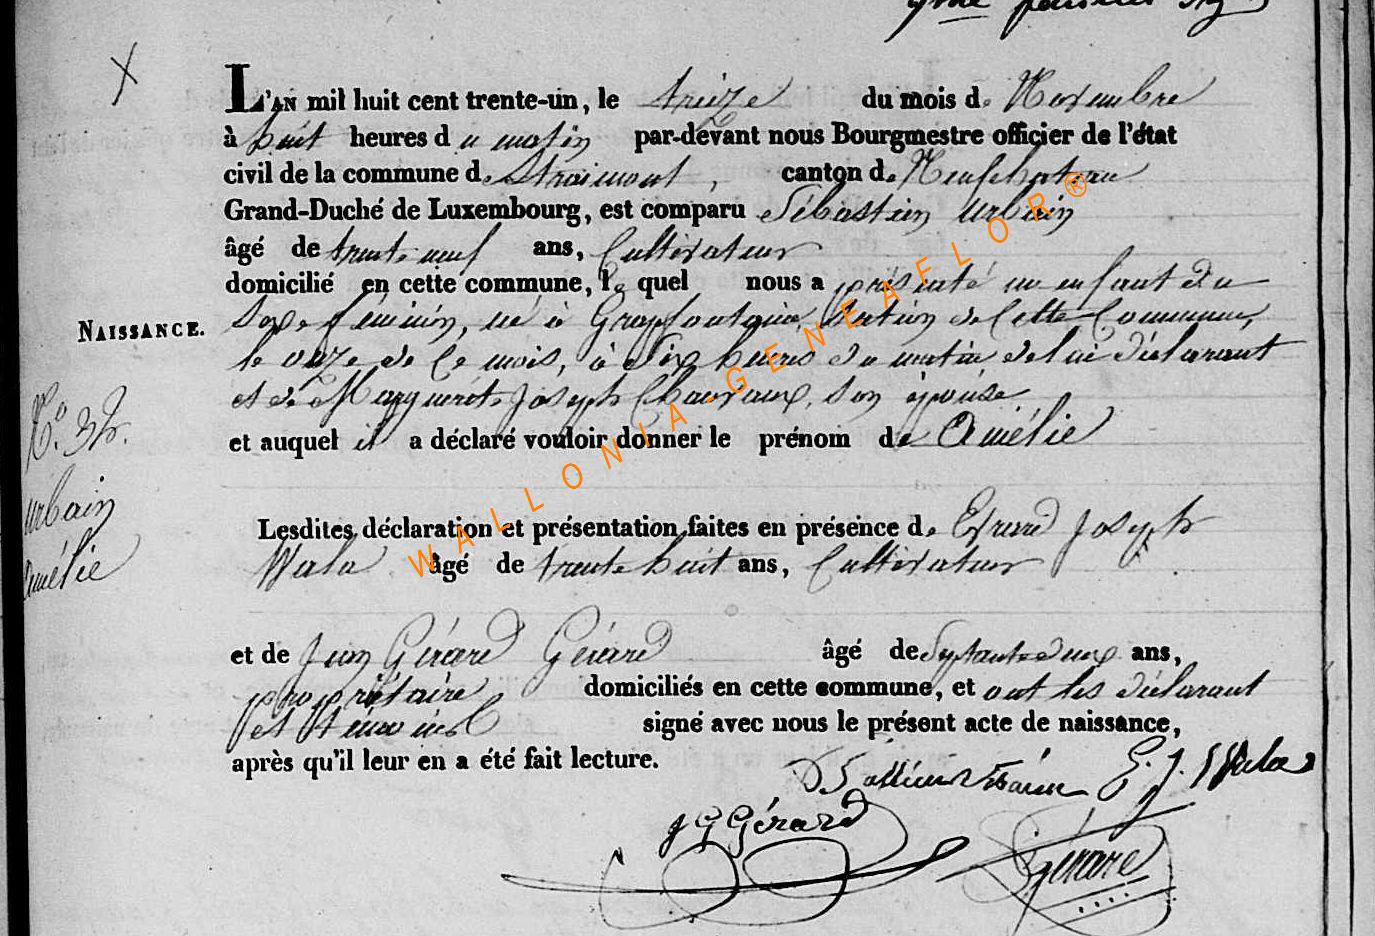 L'AN mil huit cent trente-un, le treize du mois de Novembre
à huit heures du matin par-devant nous Bourgmestre officier de l'état
civil de la commune de Straimont, canton de Neufchateau
Grand-Duché de Luxembourg, est comparu Sébastien Urbain
âgé de trente neuf ans, Cultivateur
domicilié en cette commune, le quel nous a présenté un enfant du
NAISSANCE.
Sexe féminin, né à Grapfontaine, Section de Cette Commune,
le onze de Ce mois, à Six heures du matin de lui déclarant
et de Marguerite Joseph Chauvaux, son épouse
et auquel il a déclaré vouloir donner le prénom de Amélie
N.° 36.
urbain
amélie
Lesdites déclaration et présentation faites en présence de Evrard Joseph
Wala âgé de trente huit ans, Cultivateur
et de Jean Gérard Gérard âgé de Septante deux ans,
propriétaire domiciliés en cette commune, et ont les déclarant
et témoins signé avec nous le présent acte de naissance,
après qu'il leur en a été fait lecture.
E. J. Wala
J G Gérard
Gérard
WALLONIA-GENEAFLOR®